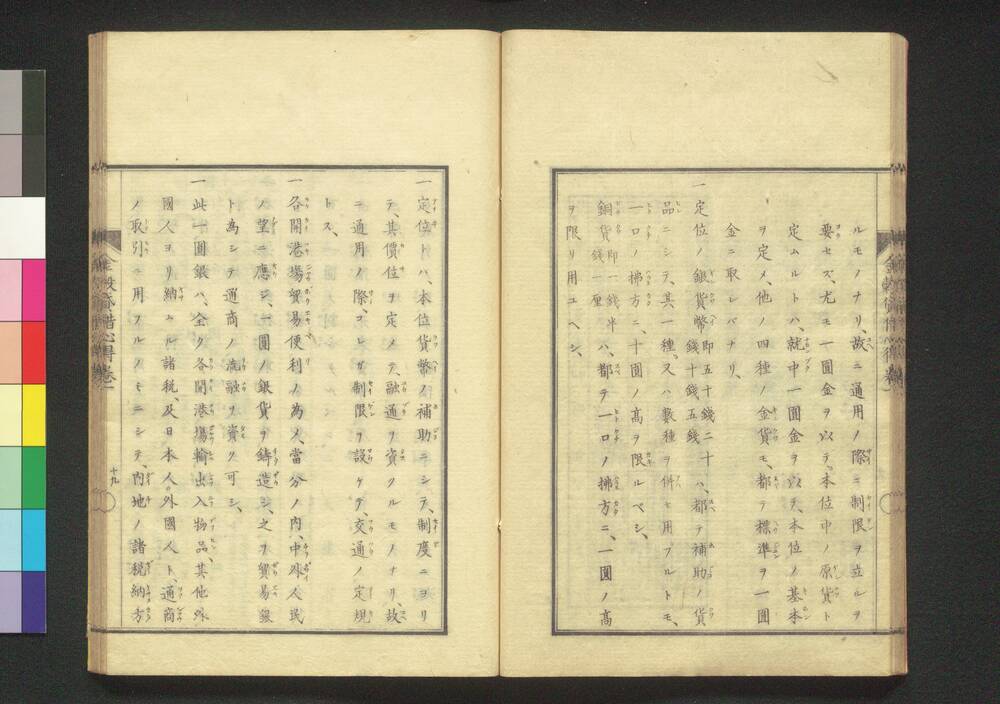 ルモノナリ、故ニ通用ノ際ニ制限ヲ立ルヲ
要セズ、尤モ一圓金ヲ以テ、本位中ノ原貨ト
定ムルトハ、就中一圓金ヲ以テ、本位ノ基本
ヲ定メ、他ノ四種ノ金貨モ、都テ標準ヲ一圓
金ニ取レバナリ、
一 定位ノ銀貨幣即五十錢二十錢十錢五錢ハ、都テ補助ノ貨
品ニシテ、其一種、又ハ數種ヲ併セ用フルトモ、
一口ノ拂方ニ、十圓ノ高ヲ限ルベシ、
銅貨即一錢半錢一厘ハ、都テ一口ノ拂方ニ、一圓ノ高
ヲ限リ用ユヘシ、
一 定位トハ、本位貨幣ノ補助ニシテ、制度ニヨリ
テ、其價位ヲ定メテ、融通ヲ資クルモノナリ、故
ニ通用ノ際、コレガ制限ヲ設ケテ、交通ノ定規
トス、
一 各開港場貿易便利ノ為メ、當分ノ内、中外人民
ノ望ニ應シ、一圓ノ銀貨ヲ鋳造シ、之ヲ貿易銀
ト為シテ通商ノ流融ヲ資ク可シ、
一 此一圓銀ハ、全ク各開港場輸出入物品、其他外
國人ヨリ納ムル諸税、及日本人、外國人ト、通商
ノ取引ニ用フルノミニシテ、内地ノ諸税納方
十九